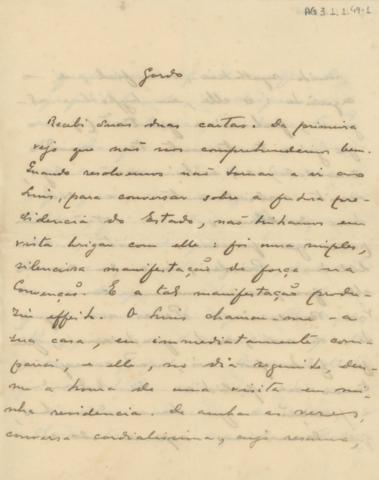 AG 3.1.1.49-1
Gordo
Recebi suas duas cartas. Da primeira
vejo que não nos comprehendemos bem.
Quando resolvemos não tornar a ir ao
Luis, para conversar sobre a futura pre-
sidencia do Estado, não tinhamos em
vista brigar com elle: foi uma simples,
silenciosa manifestação de força na
Convenção. E a tal manifestação produ-
ziu effeito. O Luis chamou-me a
sua casa, eu immediatamente com-
pareci, e elle, no dia seguinte, deu-
me a honra de uma visita em mi-
nha residencia. De ambas as vezes,
conversa cordialissima, cujo resumo,